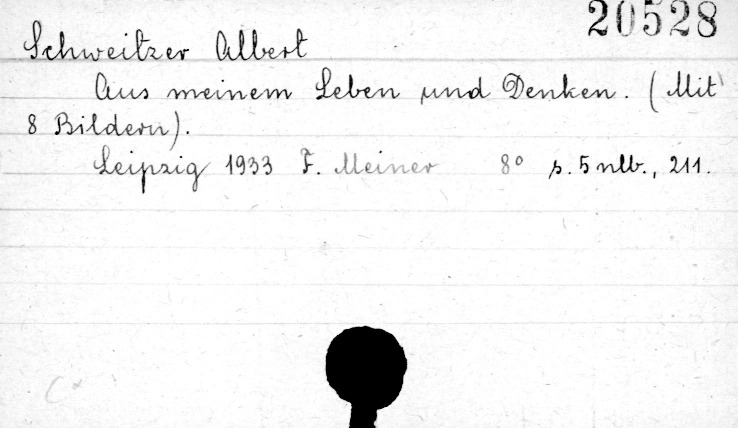 20528
Schweitzer Albert
Aus meinem Leben und Denken. (Mit
8 Bildern).
Leipzig 1933 F. Meiner 8° s. 5 nlb., 211.